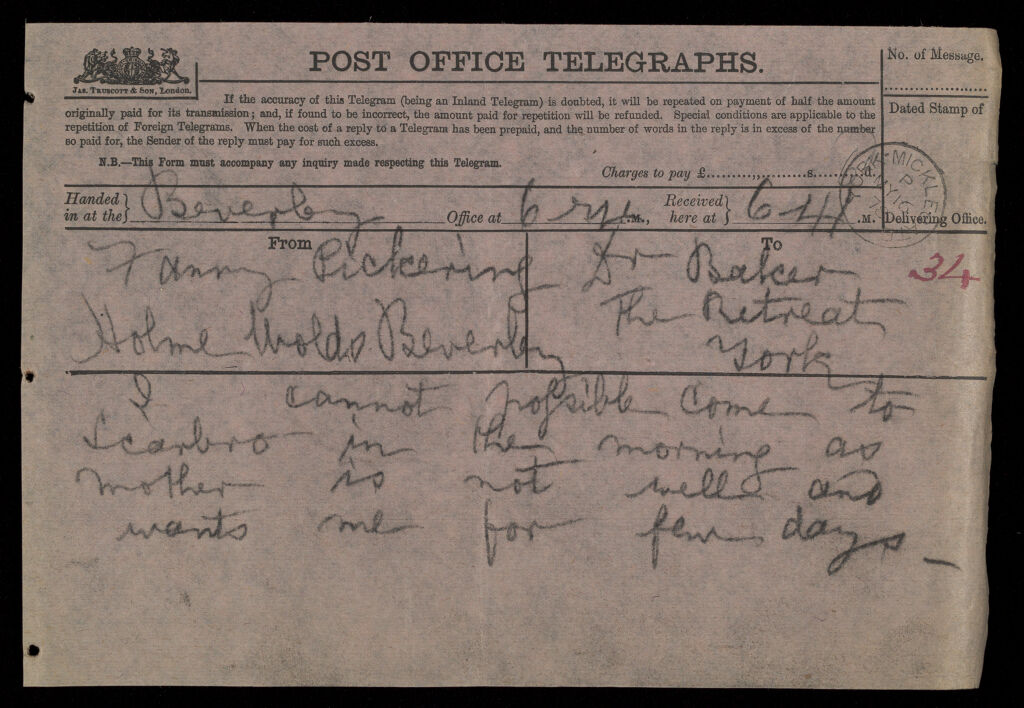 POST OFFICE TELEGRAPHS.
No. of Message.
JAS. TRUSCOTT & SON, London.
Dated Stamp of
If the accuracy of this Telegram (being an Inland Telegram) is doubted, it will be repeated on payment of half the amount
originally paid for its transmission; and, if found to be incorrect, the amount paid for repetition will be refunded. Special conditions are applicable to the
repetition of Foreign Telegrams. When the cost of a reply to a Telegram has been prepaid, and the number of words in the reply is in excess of the number
so paid for, the Sender of the reply must pay for such excess.
N.B.—This Form must accompany any inquiry made respecting this Telegram.
Charges to pay £ s. d.
Handed in at the Beverley Office at 6 .M., Received here at 6 .M. Delivering Office.
From To
Fanny Pickering Dr Baker
34
Holme Wolds Beverley The Retreat
York
I cannot possible come to
Scarbro in the morning as
mother is not well and
wants me for few days